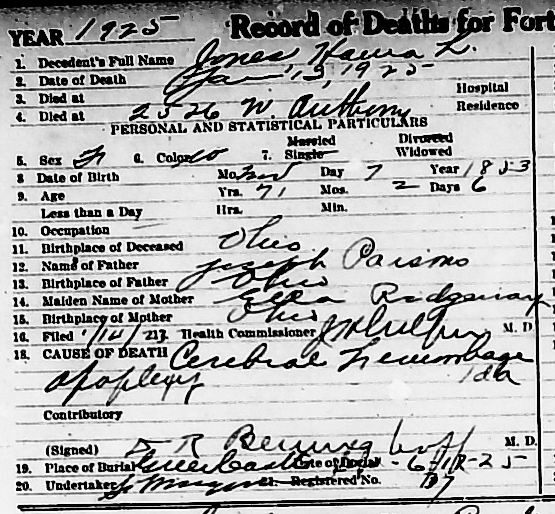 YEAR 1925 Record of Deaths for Fort
1. Decedent's Full Name Jones, L.
2. Date of Death Jan 13, 1925
3. Died at Hospital
4. Died at 2526 W. Anthony Residence
PERSONAL AND STATISTICAL PARTICULARS
5. Sex F 6. Color W 7. Married Single Divorced Widowed
8 Date of Birth Mo. Nov Day 7 Year 1853
9. Age Yrs. 71 Mos. 2 Days 6
Less than a Day Hrs. Min.
10. Occupation —
11. Birthplace of Deceased Ohio
12. Name of Father Joseph Parsons
13. Birthplace of Father Ohio
14. Maiden Name of Mother Ella Ridgeway
15. Birthplace of Mother Ohio
16. Filed 1/14/ Health Commissioner M. D.
18. CAUSE OF DEATH Cerebral
apoplexy 1da
Contributory
(Signed) R M. D.
19. Place of Burial Date of Burial
20. Undertaker 21. Registered No. 37